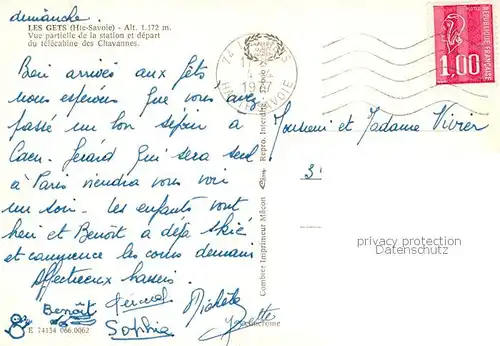 dimanche.
LES GETS (Hte-Savoie) - Alt. 1.172 m.
Vue partielle de la station et départ
du télécabine des Chavannes.
Bien arrivés aux Gets
nous espérons que vous avez
passé un bon séjour à
Caen. Gérard qui sera seul
à Paris viendra vous voir
un soir. Les enfants vont
bien et Benoît a déjà skié
et commence les cours demain
Affectueux baisers.
Benoît Gérard Michèle
Sophie Yvette
E 74134 066.0062
Combier Imprimeur Mâcon
Repro. Interdite
74 LES GETS
HTE SAVOIE
POSTES
1,00
REPUBLIQUE FRANÇAISE
Monsieur et Madame Vivier
3
privacy protection
Datenschutz